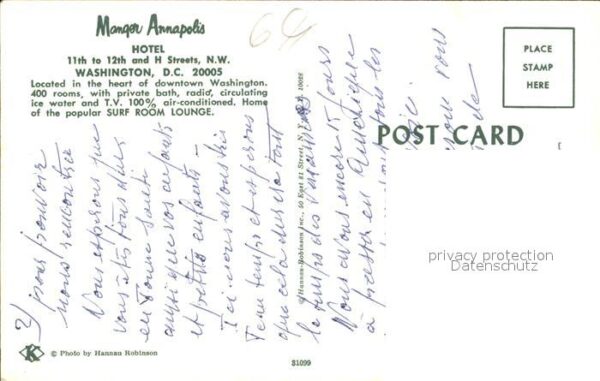 Manger Annapolis
HOTEL
11th to 12th and H Streets, N.W.
WASHINGTON, D.C. 20005
Located in the heart of downtown Washington.
400 rooms, with private bath, radio, circulating
ice water and T.V. 100% air-conditioned. Home
of the popular SURF ROOM LOUNGE.
64
PLACE
STAMP
HERE
POST CARD
2)
pour pouvoir
nous rencontrer
Nous espérons que
vous êtes tous deux
en bonne santé
ainsi que vos enfants
et petits enfants
Ici nous avons très
beau temps et espérons
que cela durera tout
le temps des vacances
Nous avons encore 15 jours
à passer en Amérique
tous les
ici
vous
de
© Hannau-Robinson Inc., 50 East 81 Street, N.Y. 10028
privacy protection
Datenschutz
K
© Photo by Hannau Robinson
S1099